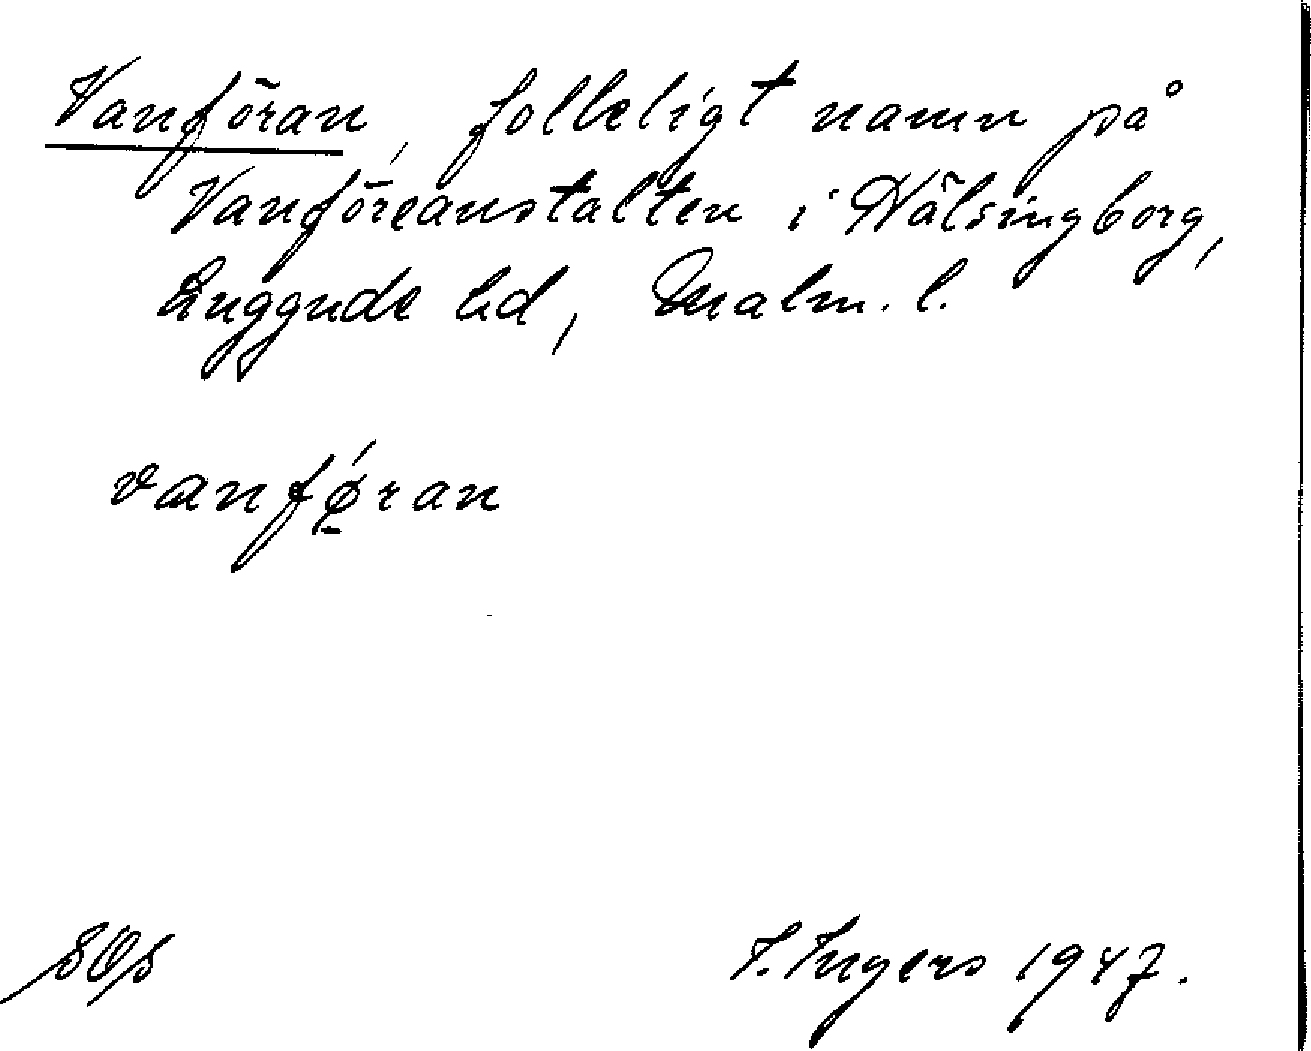 Vanföran, folkligt namn på
Vanföreanstalten i Hälsingborg,
Luggude hd, Malm. l.
vanfǿran
I. Ingers 1947.